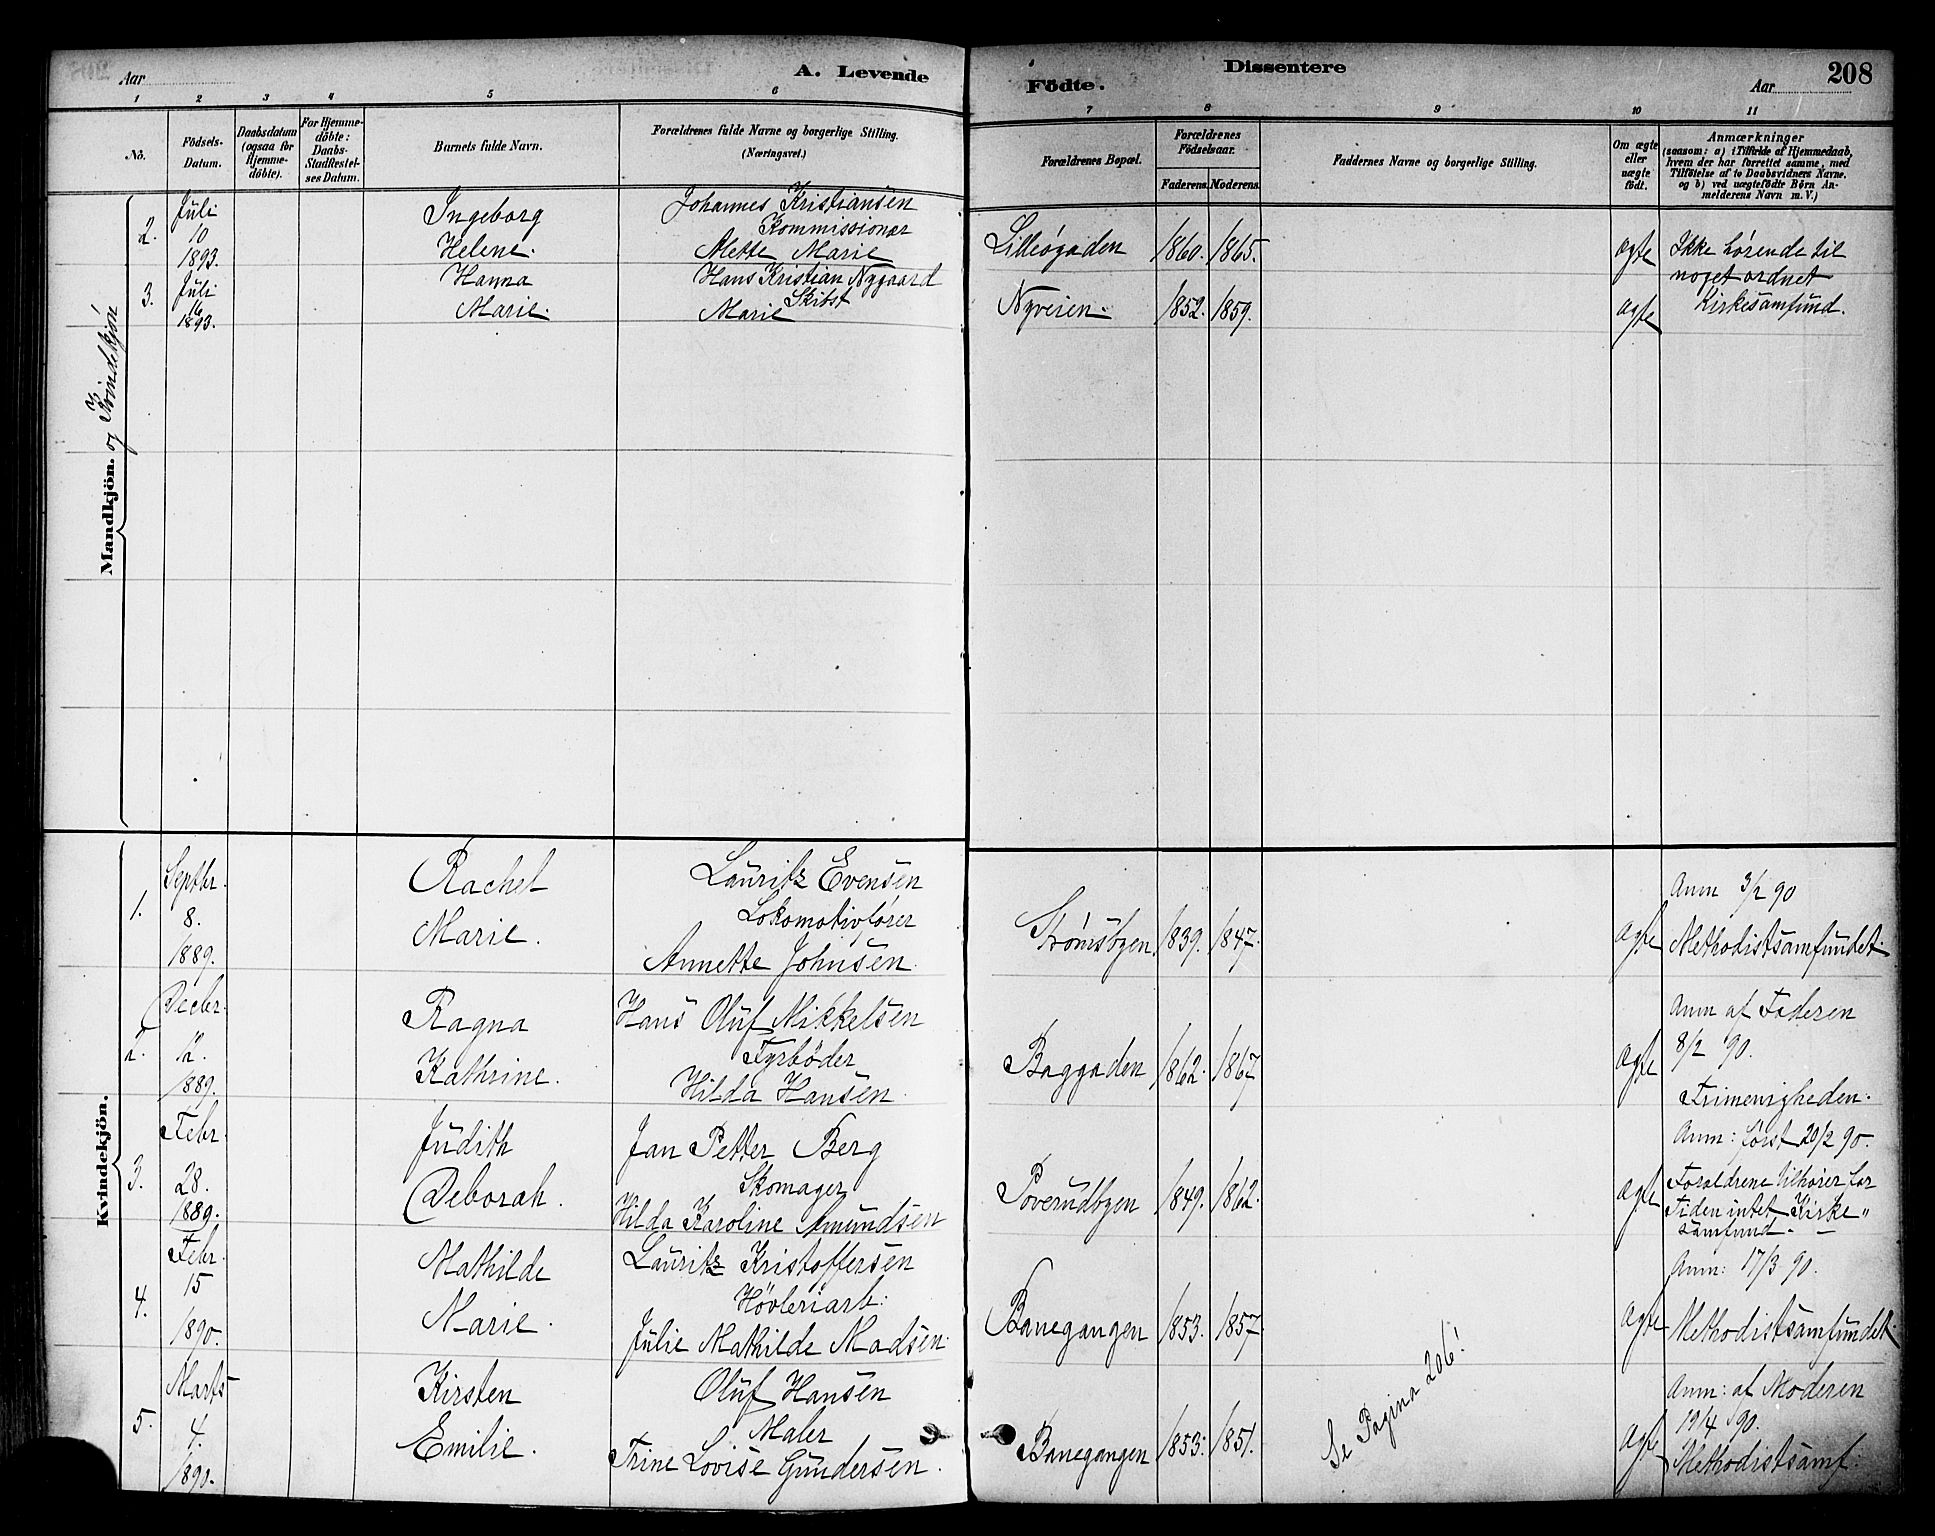 Aar
A. Levende
Födte.
Dissentere
Aar
208
1 2 3 4 5 6 7 8 9 10 11
No.
Födsels-
Datum.
Daabsdatum
(ogsaa for
Hjemme-
döbte).
For Hjemme-
döbte:
Daabs-
Stadfæstel-
ses Datum.
Barnets fulde Navn.
Forældrenes fulde Navne og borgerlige Stilling.
(Næringsvei.)
Forældrenes Bopæl.
Forældrenes
Födselsaar.
Faderens. Moderens.
Faddernes Navne og borgerlige Stilling.
Om ægte
eller
uægte
födt.
Anmærkninger
(saasom: a) i Tilfælde af Hjemmedaab,
hvem der har forrettet samme, med
Tilföielse af to Daabsvidners Navne.
og b) ved uægtefödte Börn An-
melderens Navn m. V.)
Mandkjön. og Kvindekjön
2.
Juli
10
1893.
Ingeborg
Helene.
Johannes Kristiansen
Kommissionær
Mette Marie
Lilleøgaden 1860. 1865.
ægte
Ikke hørende til
noget ordnet
Kirkesamfund.
3.
Juli
16
1893.
Hanna
Marie.
Hans Kristian Nygaard
Skibst
Marie
Nyveien. 1852. 1859.
ægte
Kvindekjön.
1.
Septbr.
8.
1889.
Rachel
Marie.
Lauritz Evensen
Lokomotivfører
Annette Johnsen
Strømsbyen. 1839. 1847.
ægte
Anm 3/2 90
Methodistsamfundet.
2.
Decbr.
12.
1889.
Ragna
Kathrine.
Hans Oluf Mikkelsen
Fyrböder
Hilda Hansen
Baggaden 1862. 1867
ægte
Anm af Faderen
8/2 90.
Frimenigheden.
3.
Febr.
28.
1889.
Judith
Deborah.
Jan Petter Berg
Skomager
Hilda Karoline Amundsen
Poverudbyen 1849. 1862.
ægte
Anm: først 20/2 90.
Forældrene tilhører for
Tiden intet Kirke„
samfund. –
4.
Febr.
15
1890.
Mathilde
Marie.
Lauritz Kristoffersen
Hövleriarb:
Julie Mathilde Madsen.
Banegangen 1853. 1857
ægte
Anm: 17/3 90.
Methodistsamfundet.
5.
Marts
4.
1890.
Kirsten
Emilie.
Oluf Hansen
Maler
Trine Lovise Gundersen.
Banegangen 1853. 1851.
Se Pagina 206!
ægte
Anm: af Moderen
19/4 90.
Methodistsamf.